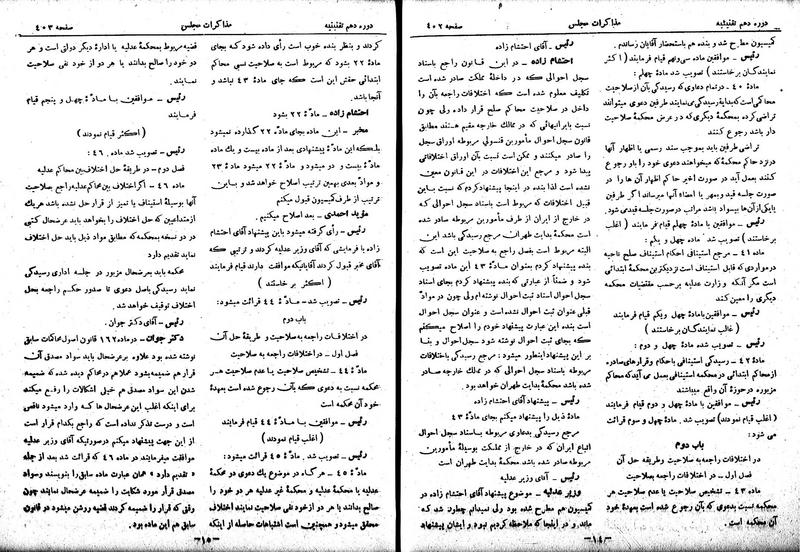 دوره دهم تقنینیه
مذاکرات مجلس
صفحه ۴۰۲
کمیسیون مطرح شد و بنده هم باستحضار آقایان رساندم.
رئیس - موافقین ماده سی و نهم قیام فرمایند (اکثر
نمایندگان برخاستند) تصویب شد ماده چهلم:
ماده ۴۰ - در تمام دعاوی که رسیدگی بآن از صلاحیت
محاکمی است که بدایة رسیدگی مینمایند طرفین دعوی میتوانند
تراضی کرده بمحکمه دیگری که در عرض محکمهٔ صلاحیت
دار باشد رجوع کنند
تراضی طرفین باید بموجب سند رسمی یا اظهار آنها
در نزد حاکم محکمه که میخواهند دعوی خود را باو رجوع
کنند بعمل آید در صورت اخیر حاکم اظهار آن ها را در
صورت جلسه قید و بمهر یا امضاء آنها میرساند اگر طرفین
یا یکی از آنها بیسواد باشد مراتب در صورت جلسه قید میشود.
رئیس - موافقین با مادهٔ چهلم قیام فرمایند (اغلب
برخاستند) تصویب شد ماده چهل و یکم:
ماده ۴۱ - مرجع استینافی احکام محاکم صلح ناحیه
در مواردی که قابل استیناف است نزدیکترین محکمهٔ ابتدائی
است مگر آنکه وزارت عدلیه بر حسب مقتضیات محکمه
دیگری را معین کند
رئیس - موافقین با مادهٔ چهل و یکم قیام فرمایند
(غالب نمایندگان برخاستند)
رئیس - تصویب شد مادهٔ چهل و دوم:
مادهٔ ۴۲ - رسیدگی استینافی باحکام و قرارهای صادره
از محاکم ابتدائی در محکمه استینافی بعمل می آید که محاکم
مزبوره در حوزهٔ آن واقع میباشند
رئیس - موافقین با مادهٔ چهل و دوم قیام فرمایند
(اغلب قیام نمودند) تصویب شد. مادهٔ چهل و سوم قرائت
می شود:
باب دوم
در اختلافات راجعه به صلاحیت و طریقه حل آن
فصل اول - در اختلافات راجعه بصلاحیت
ماده ۴۳ - تشخیص صلاحیت یا عدم صلاحیت هر
محکمه نسبت بدعوی که بآن رجوع شده است بعهدهٔ خود
آن محکمه است.
رئیس - آقای احتشام زاده
احتشام زاده - در این قانون راجع باسناد
سجل احوالی که در داخلهٔ مملکت صادر شده است
تکلیف معلوم شده است که اختلافات راجعه بآن را
داخل در صلاحیت محاکم صلح قرار داده ولی چون
نسبت بایرانیهائی که در ممالک خارجه مقیم هستند مطابق
قانون سجل احوال مأمورین قنسولی مربوطه اوراق سجل
را صادر میکنند و ممکن است نسبت بآن اوراق اختلافاتی
پیدا شود و مرجع این اختلافات در این قانون معین
نشده است لذا بنده در اینجا پیشنهاد کردم که نسبت باین
قبیل اختلافات که مربوط است باسناد سجل احوالی که
در خارج از ایران از طرف مأمورین مربوطه صادر شده
است محکمهٔ بدایت طهران مرجع رسیدگی باشد این
البته مربوط است بفصل راجع به صلاحیت این است که
بنده پیشنهاد کردم بعنوان مادهٔ ۴۳ این ماده تصویب
شود و ضمناً از عبارتی که بنده پیشنهاد کردم بجای اسناد
سجل احوال اسناد ثبت احوال نوشته ام ولی چون در مواد
قبلی عنوان ثبت احوال نشده است و عنوان سجل احوال
است بنده این عبارت پیشنهاد خودم را اصلاح میکنم
که بجای ثبت احوال نوشته شود سجل احوال و بنا
بر این پیشنهاد اینطور میشود: مرجع رسیدگی باختلافات
مربوطه باسناد سجل احوالی که در ممالک خارجه صادر
شده باشد محکمهٔ بدایت طهران خواهد بود.
رئیس - پیشنهاد آقای احتشام زاده
مادهٔ ذیل را پیشنهاد میکنم بجای مادهٔ ۴۳
مرجع رسیدگی بدعاوی مربوطه باسناد سجل احوال
اتباع ایران که در خارج از مملکت بوسیلهٔ مأمورین
مربوطه صادر شده باشد محکمهٔ بدایت طهران است
رئیس - آقای وزیر عدلیه
وزیر عدلیه - موضوع پیشنهاد آقای احتشام زاده در
کمیسیون هم مطرح شده بود ولی نمیدانم چطور شد که
ماند و در اینجا که ملاحظه کردیم نبود و ایشان پیشنهاد
-۱۴-
دوره دهم تقنینیه
مذاکرات مجلس
صفحه ۴۰۳
کردند و بنظر بنده خوب است رأی داده شود که بجای
مادهٔ ۲۲ بشود که مربوط است به صلاحیت نسبی محاکم
ابتدائی حقش این است که جای مادهٔ ۴۳ نباشد و
آنجا باشد.
احتشام زاده - مادهٔ ۲۲ بشود
مخبر - این ماده بجای مادهٔ ۲۲ گذارده نمیشود
بلکه این مادهٔ پیشنهادی بعد از ماده بیست و یک مادهٔ
مادهٔ بیست و دو میشود و مادهٔ ۲۲ میشود مادهٔ ۲۳
و مواد بعدی بهمین ترتیب اصلاح خواهد شد و باین
ترتیب از طرف کمیسیون قبول میکنم
مؤید احمدی - بعد اصلاح میکنیم.
رئیس - رأی گرفته میشود باین پیشنهاد آقای احتشام
زاده با فرمایشی که آقای وزیر عدلیه کردند و ترتیبی که
آقای مخبر قبول کردند آقایانیکه موافقت دارند قیام فرمایند
(اکثر برخاستند)
رئیس - تصویب شد - مادهٔ ۴۴ قرائت میشود:
باب دوم
در اختلافات راجعه به صلاحیت و طریقهٔ حل آن
فصل اول - در اختلافات راجعه به صلاحیت
مادهٔ ۴۴ - تشخیص صلاحیت یا عدم صلاحیت هر
محکمه نسبت به دعوی که بآن رجوع شده است بعهدهٔ
خود آن محکمه است
رئیس - موافقین با مادهٔ ۴۴ قیام فرمایند
(اغلب قیام نمودند)
رئیس - تصویب شد. مادهٔ ۴۵ قرائت میشود:
مادهٔ ۴۵ - هر گاه در موضوع یک دعوی در محکمهٔ
عدلیه یا محکمهٔ عدلیه و محکمهٔ غیر عدلیه هر دو خود را
صالح بدانند یا هر دو از خود نفی صلاحیت نمایند اختلاف
محقق میشود و همچنین است اشتباهات حاصله از اینکه
قضیه مربوط بمحکمهٔ عدلیه یا ادارهٔ دیگر دولتی است و هر
دو خود را صالح بدانند یا هر دو از خود نفی صلاحیت
نمایند.
رئیس - موافقین با مادهٔ چهل و پنجم قیام
فرمایند
(اکثر قیام نمودند)
رئیس - تصویب شد. ماده ۴۶:
فصل دوم - در طریقهٔ حل اختلاف بین محاکم عدلیه
ماده ۴۶ - اگر اختلاف بین محاکم عدلیه راجع بصلاحیت
آنها بوسیلهٔ استیناف یا تمیز از قرار حل نشده باشد هر یک
از متداعیین که حل اختلاف را بخواهد باید عرضحال کتبی
در دو نسخه بمحکمه که مطابق مواد ذیل باید حل اختلاف
نماید تقدیم دارد
محکمه باید بعرضحال مزبور در جلسه اداری رسیدگی
نماید رسیدگی باصل دعوی تا صدور حکم راجعه بحل
اختلاف توقیف خواهد شد.
رئیس - آقای دکتر جوان.
دکتر جوان - در ماده ۱۶۲ قانون اصول محاکمات سابق
نوشته شده بود علاوه بر عرضحال باید سواد مصدق آن
قرار هم ضمیمه بشود بعلاوه هم در محاکم دیده شده که ضمیمه
شدن این سواد مصدق هم خیلی اشکالات را رفع میکند
برای اینکه اغلب این عرضحال ها که وارد میشود ناقص
است و درست تذکر نداده است که راجع بکدام قرار است
از این جهت پیشنهاد میکنم در صورتیکه آقای وزیر عدلیه
موافقت میفرمایند در ماده ۴۶ که قرائت شد بعد از جمله
«تقدیم دارد» همان عبارت ماده سابق را بنویسند و سواد
مصدق قرار مورد شکایت را ضمیمه عرضحال نمایند چون
وقتی که قرار را ضمیمه کردند قضیه روشن میشود در قانون
سابق هم این ماده بود.
-۱۵-